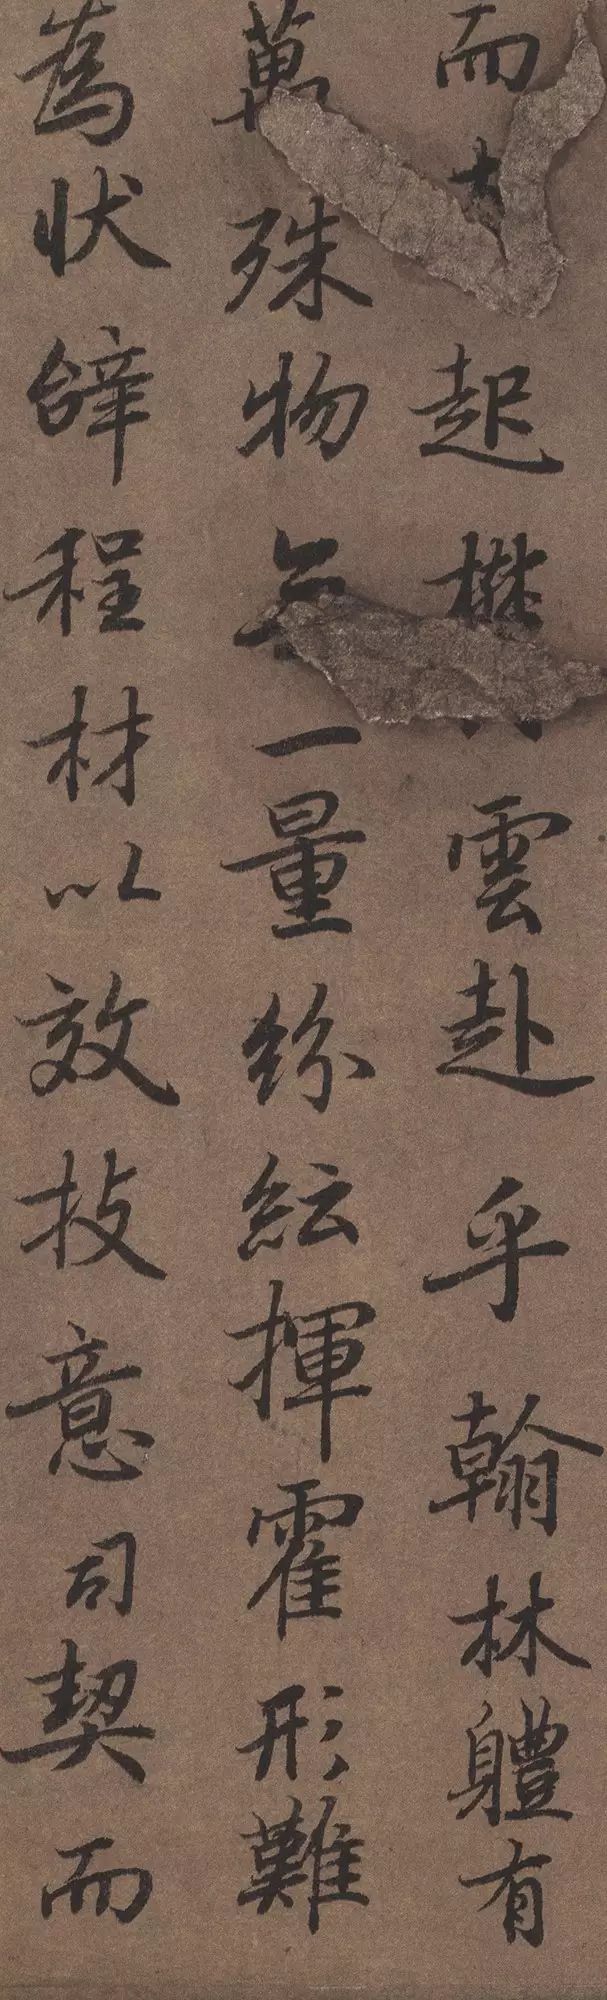 而起雲赴乎翰林軆有
萬殊物一量紛紜揮霍形難
為狀辝程材以效技意司契而